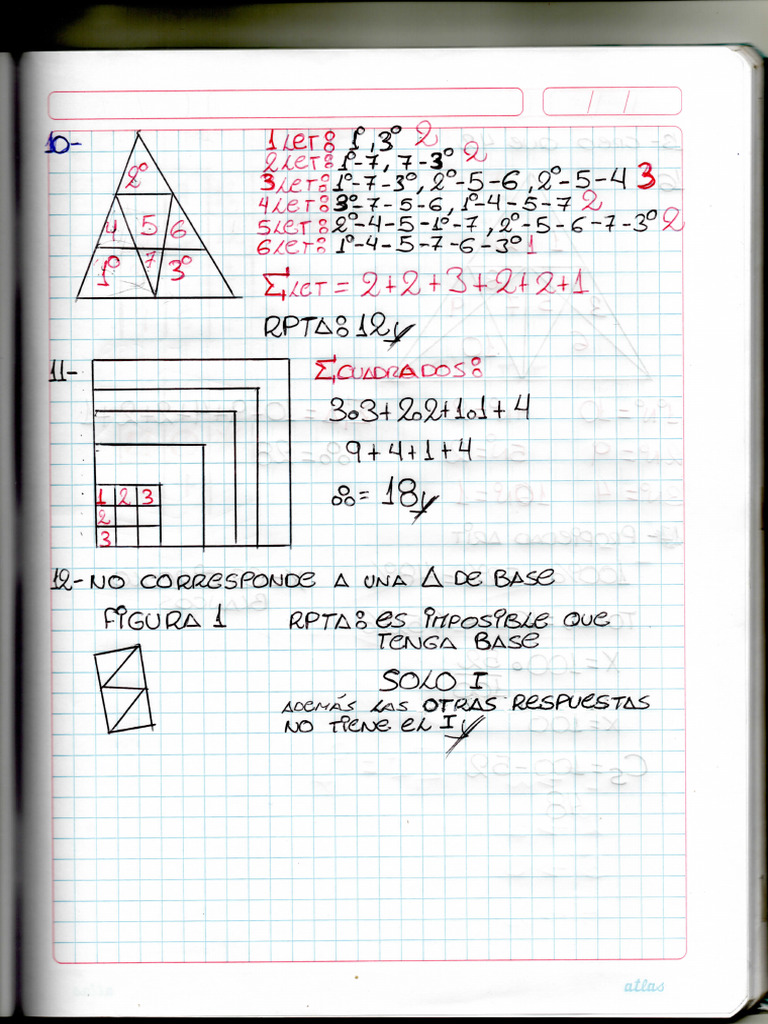 10-
1LET: 1°, 3° 2
2LET: 1°-7, 7-3° 2
3LET: 1°-7-3°, 2°-5-6, 2°-5-4 3
4LET: 3°-7-5-6, 1°-4-5-7 2
5LET: 2°-4-5-1°-7, 2°-5-6-7-3° 2
6LET: 1°-4-5-7-6-3° 1
ΣLET = 2+2+3+2+2+1
RPTA: 12
2°
4 5 6
1° 7 3°
11-
ΣCUADRADOS:
3.3+2.2+1.1+4
9+4+1+4
∴= 18
1 2 3
2
3
12- NO CORRESPONDE A UNA Δ DE BASE
FIGURA 1
RPTA: ES IMPOSIBLE QUE
TENGA BASE
SOLO I
ADEMÁS LAS OTRAS RESPUESTAS
NO TIENE EL I
atlas